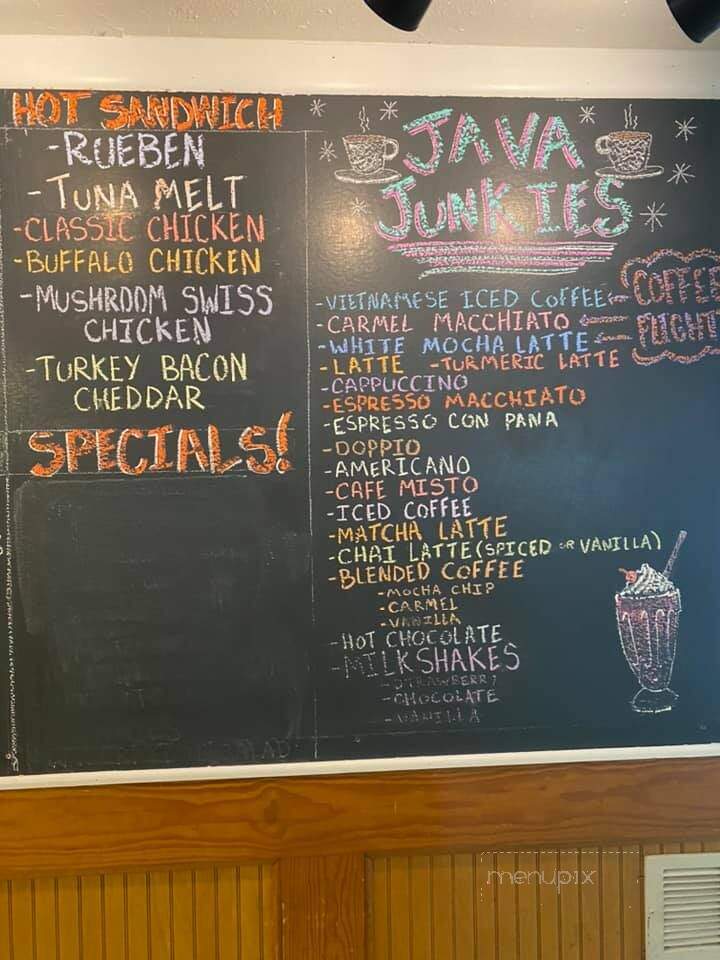 HOT SANDWICH
-RUEBEN
-TUNA MELT
-CLASSIC CHICKEN
-BUFFALO CHICKEN
-MUSHROOM SWISS
CHICKEN
-TURKEY BACON
CHEDDAR
SPECIALS!
JAVA
JUNKIES
-VIETNAMESE ICED COFFEE
-CARMEL MACCHIATO
-WHITE MOCHA LATTE
-LATTE -TURMERIC LATTE
-CAPPUCCINO
-ESPRESSO MACCHIATO
-ESPRESSO CON PANA
-DOPPIO
-AMERICANO
-CAFE MISTO
-ICED COFFEE
-MATCHA LATTE
-CHAI LATTE (SPICED OR VANILLA)
-BLENDED COFFEE
-MOCHA CHIP
-CARMEL
-VANILLA
-HOT CHOCOLATE
-MILKSHAKES
-STRAWBERRY
-CHOCOLATE
-VANILLA
COFFEE
FLIGHT
menupix